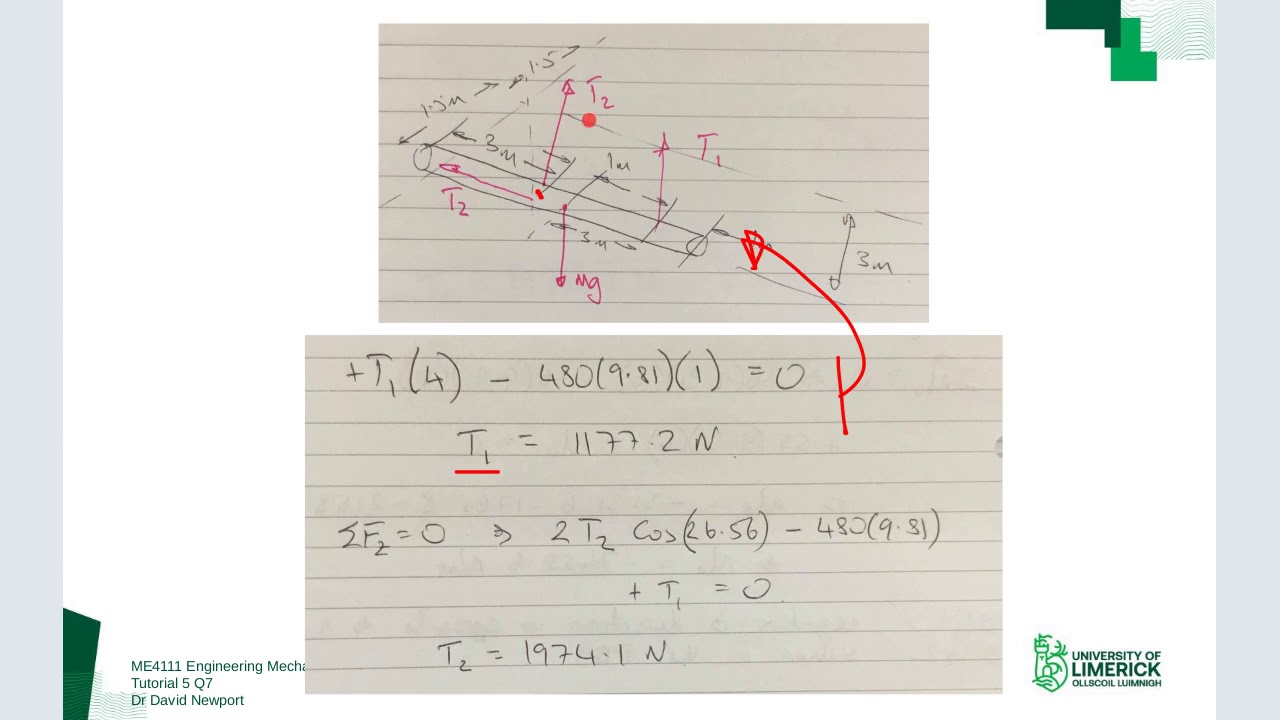 1.5m
1.5
T₂
3m
1m
T₁
T₂
3m
3m
Mg
+T₁(4) - 480(9.81)(1) = 0
T₁ = 1177.2 N
ΣF_z = 0 ⇒ 2T₂ Cos(26.56) - 480(9.81)
+ T₁ = 0
T₂ = 1974.1 N
ME4111 Engineering Mecha
Tutorial 5 Q7
Dr David Newport
UNIVERSITY OF
LIMERICK
OLLSCOIL LUIMNIGH